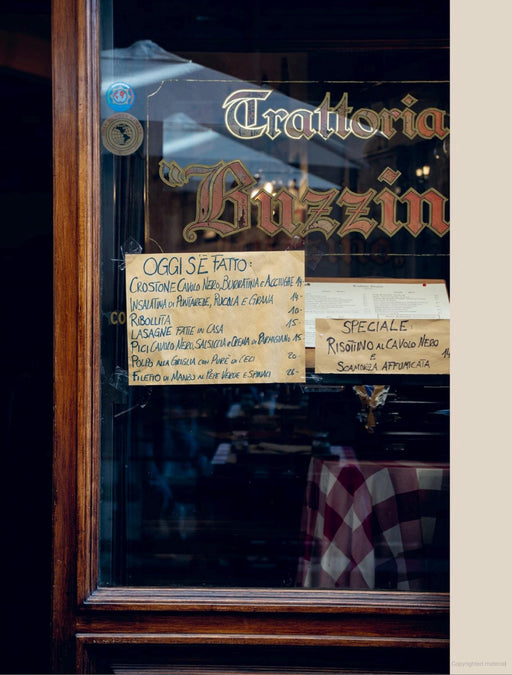 Trattoria
"Buzzin
OGGI S'È FATTO:
CROSTONE CAVOLO NERO, BURRATINA E ACCIUGHE 14-
INSALATINA DI PUNTARELLE, RUCOLA E GRANA 14-
RIBOLLITA 10-
LASAGNE FATTE IN CASA 15-
PICI CAVOLO NERO, SALSICCIA E CREMA DI PARMIGIANO 15
POLPO ALLA GRIGLIA CON PURÈ DI CECI 20-
FILETTO DI MANZO AL PEPE VERDE E SPINACI 26-
SPECIALE:
RISOTTINO AL CAVOLO NERO
E
SCAMORZA AFFUMICATA 14
CO
Copyrighted material